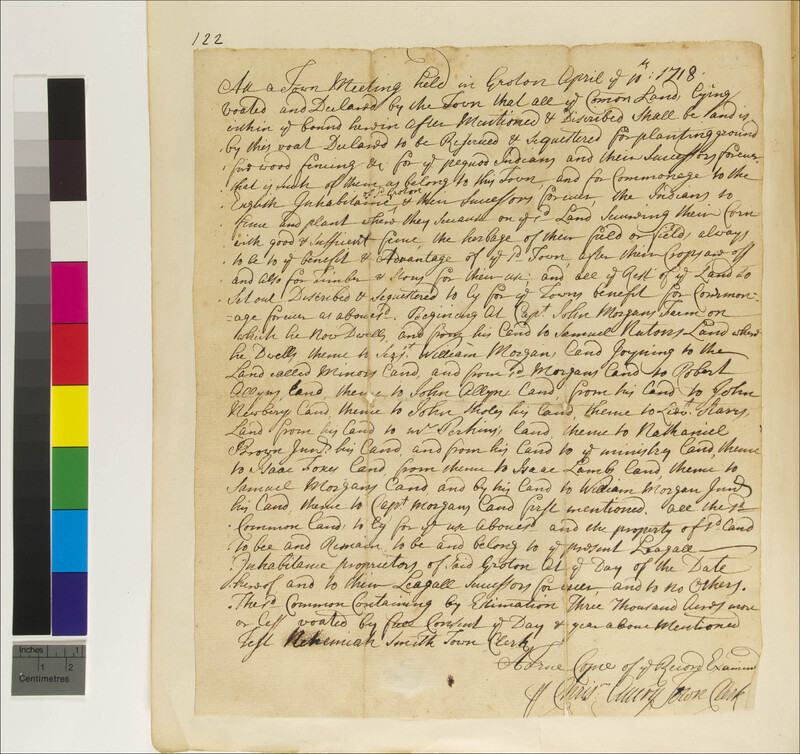 122
Att a Town Meeting held in Groton April ye 10th: 1718.
voated and Declared by the Town that all ye Comon Land lying
within ye bound herein after Mentioned & Discribed Shall be land is
by this voat Declared to be Reserved & Sequstered for planting ground
fire wood fencing &c for ye pequod Indians and their Successors forever
that is Such of them as belong to this Town, and for Commonage to the
English Inhabitance of sd Groton & their Successors forever, the Indians to
fence and plant where they Se cause on ye sd Land Securing their Corn
with good & Sufficient fence, the herbage of their field or fields always
to be to ye benefit & Advantage of ye sd Town after their Crops are off
and also for Timber & Stons for their use, and all ye Rest of ye Land so
Set out Discribed & Sequstered to ly for ye Towns benefit for Common-
-age forever as abovesd. Begining At Capt John Morgans Farm on
which he Now Dwells, and from his Land to Samuel Nutons Land where
he Dwells, thence to Sergt. William Morgans Land Joyning to the
Land called Minors Land, and from sd Morgans Land to Robert
Allyns Land thence to John Allyns Land, from his Land to John
Newbery Land, thence to John his Land, thence to Lieut. Starrs
Land from his Land to mr Perkins Land, thence to Nathaniel
Brown Junr. his Land, and from his Land to ye ministry Land, thence
to Isaac Foxes Land, from thence to Isaac Lambs Land thence to
Samuel Morgans Land and by his Land to William Morgan Junr
his Land, thence to Capt Morgans Land first mentioned. all the sd
Common Land to ly for ye use abovesd and the property of sd Land
to bee and Remain to be and belong to ye present Leagall
Inhabitance proprietors of Said Groton At ye Day of the Date
hereof and to their Leagall Successors for ever, and to no Others.
The sd Common Containing by Estimation Three Thousand Acres more
or less voated by Consent ye Day & year above Mentioned
Test Nehemiah Smith Town Clerk
A True Copie of ye Record Examined
Avery Town Clerk
Inches
1
1
2
Centimetres